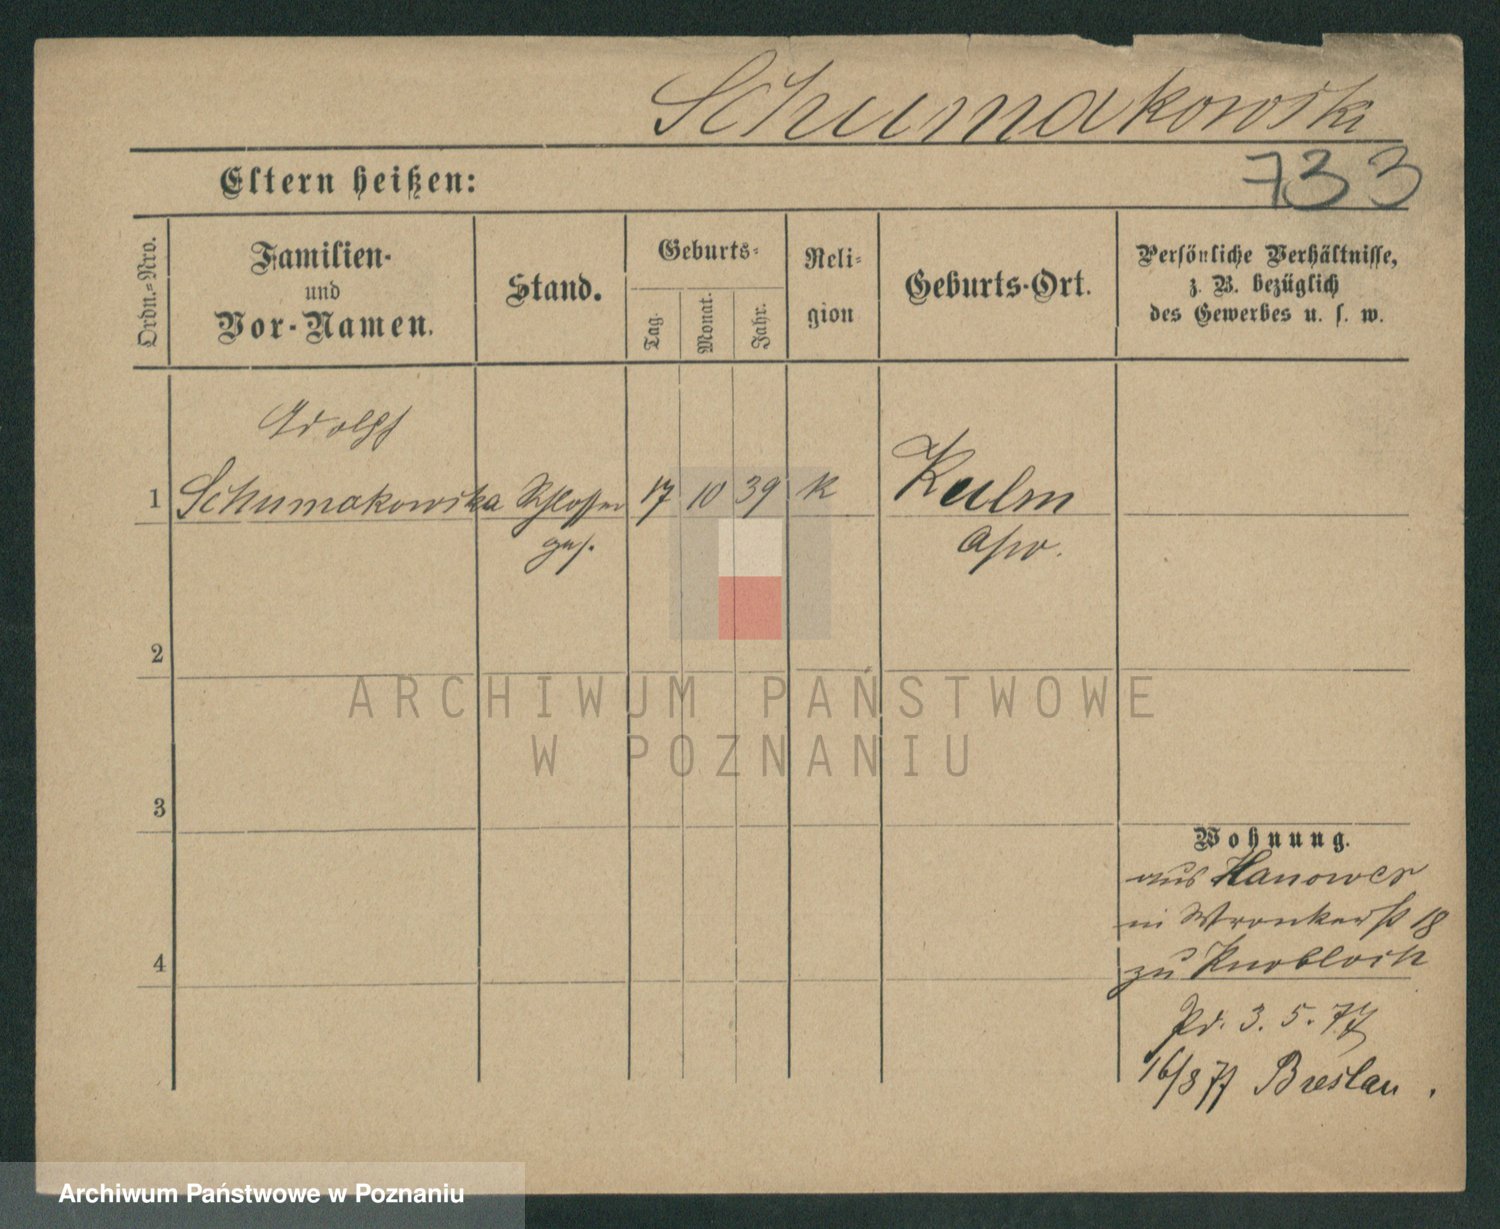 Schumakowski
733
Eltern heißen:
Ordn.=Nro.
Familien-
und
Vor-Namen.
Stand.
Geburts-
Tag.
Monat.
Jahr.
Reli-
gion
Geburts-Ort.
Persönliche Verhältnisse,
z. B. bezüglich
des Gewerbes u. s. w.
Adolph
1 Schumakowska Schlosser 17 10 39 K Kulm
ges.
2
3
Wohnung.
aus Hanower
in Wronkerst 18
4
zu Knobloch
3. 5. 77
16/8 77 Breslau.
ARCHIWUM PAŃSTWOWE
W POZNANIU
Archiwum Państwowe w Poznaniu